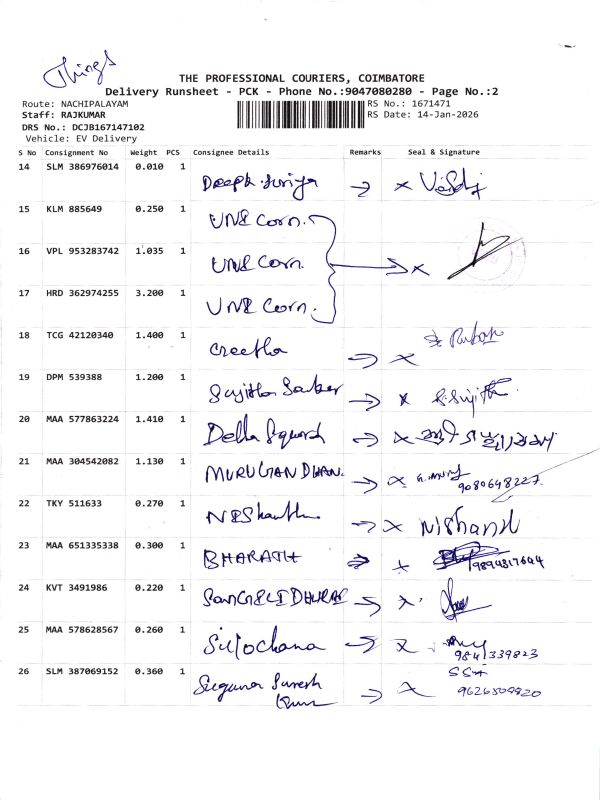 Things
THE PROFESSIONAL COURIERS, COIMBATORE
Delivery Runsheet - PCK - Phone No.:9047080280 - Page No.:2
Route: NACHIPALAYAM RS No.: 1671471
Staff: RAJKUMAR RS Date: 14-Jan-2026
DRS No.: DCJB167147102
Vehicle: EV Delivery
S No Consignment No Weight PCS Consignee Details Remarks Seal & Signature
14 SLM 386976014 0.010 1 Deepk Suriya
15 KLM 885649 0.250 1 UNI Corn.
16 VPL 953283742 1.035 1 UNI Corn.
17 HRD 362974255 3.200 1 UNI Corn.
18 TCG 42120340 1.400 1 Greetha
19 DPM 539388 1.200 1 S. Sujith
20 MAA 577863224 1.410 1 Della
21 MAA 304542082 1.130 1 MURUGANDHAN.
9080648227
22 TKY 511633 0.270 1 Nishanth Nishand
23 MAA 651335338 0.300 1 BHARATH 9894317644
24 KVT 3491986 0.220 1
25 MAA 578628567 0.260 1 Sulochana
9841339823
26 SLM 387069152 0.360 1 Suguna Suresh
Kumar